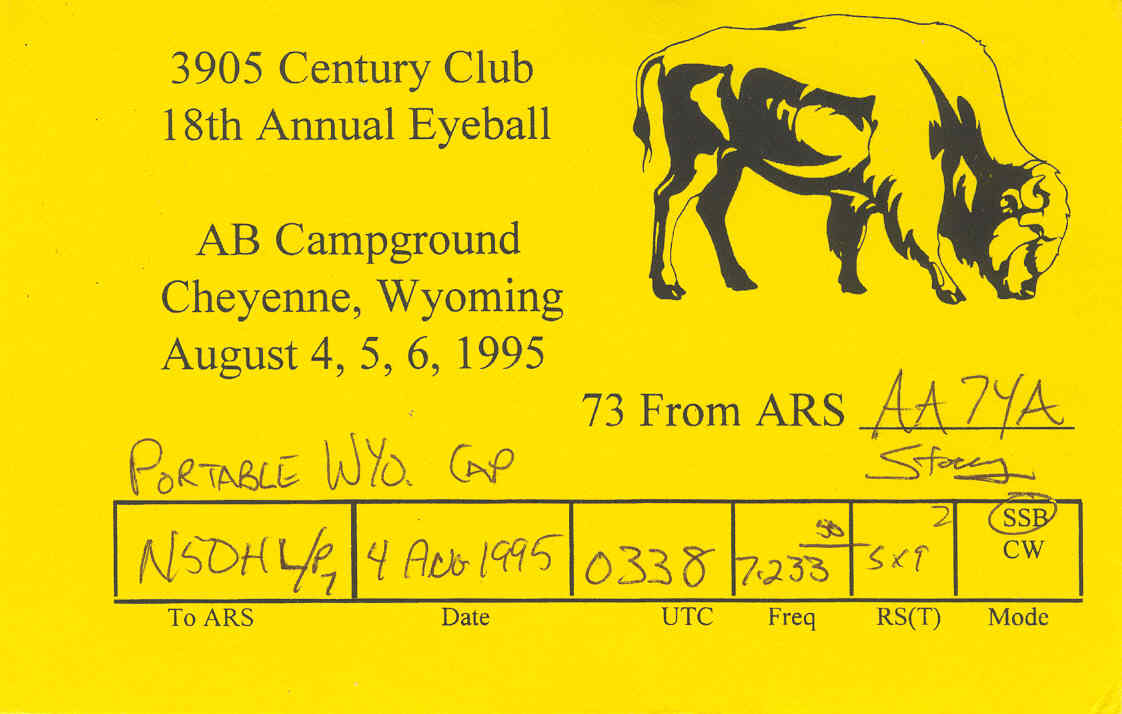 3905 Century Club
18th Annual Eyeball
AB Campground
Cheyenne, Wyoming
August 4, 5, 6, 1995
73 From ARS AA7YA
Stacy
PORTABLE WYO. CAP
N5OHL/P7 4 AUG 1995 0338 7.233 50 5x9 2 SSB
CW
To ARS Date UTC Freq RS(T) Mode